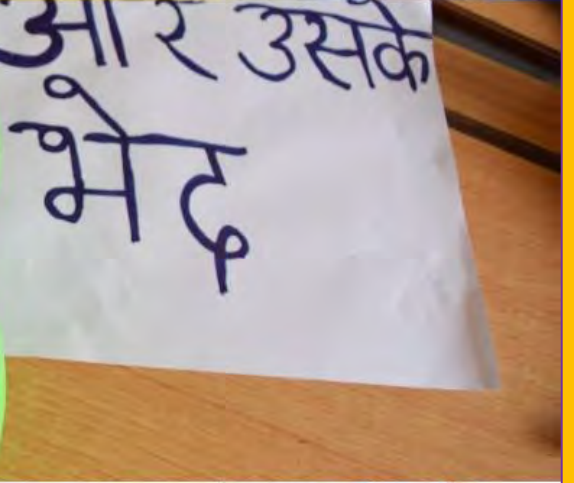 और उसके
भेद